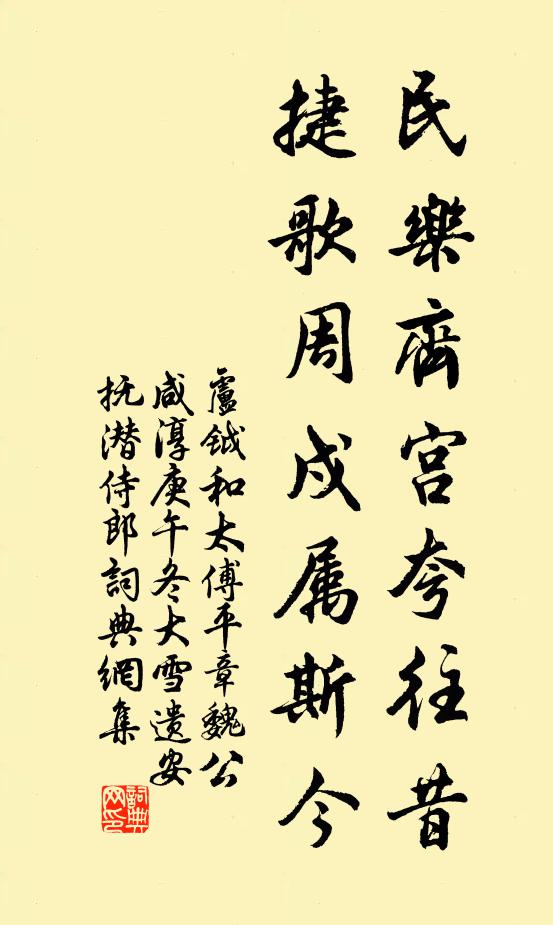 民樂齊宮夸往昔
捷歌周戍属斯今
盧鉞和太傅平章魏公
咸淳庚午冬大雪遗安
抚潜侍郎詞典網集
詞典网印